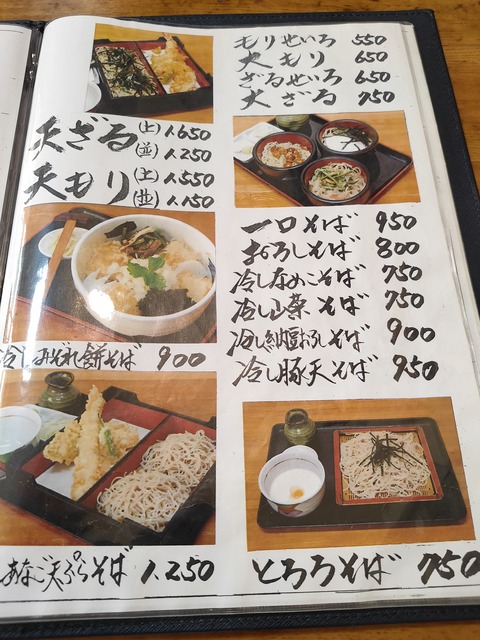 天ざる(上)1.650
(並)1.250
天もり(上)1.550
(並)1.150
冷しみぞれ餅そば 900
あなご天ぷらそば 1.250
もりせいろ 550
大もり 650
ざるせいろ 650
大ざる 750
一口そば 950
おろしそば 800
冷しなめこそば 750
冷し山菜そば 750
冷し納豆おろしそば 900
冷し豚天そば 950
とろろそば 750